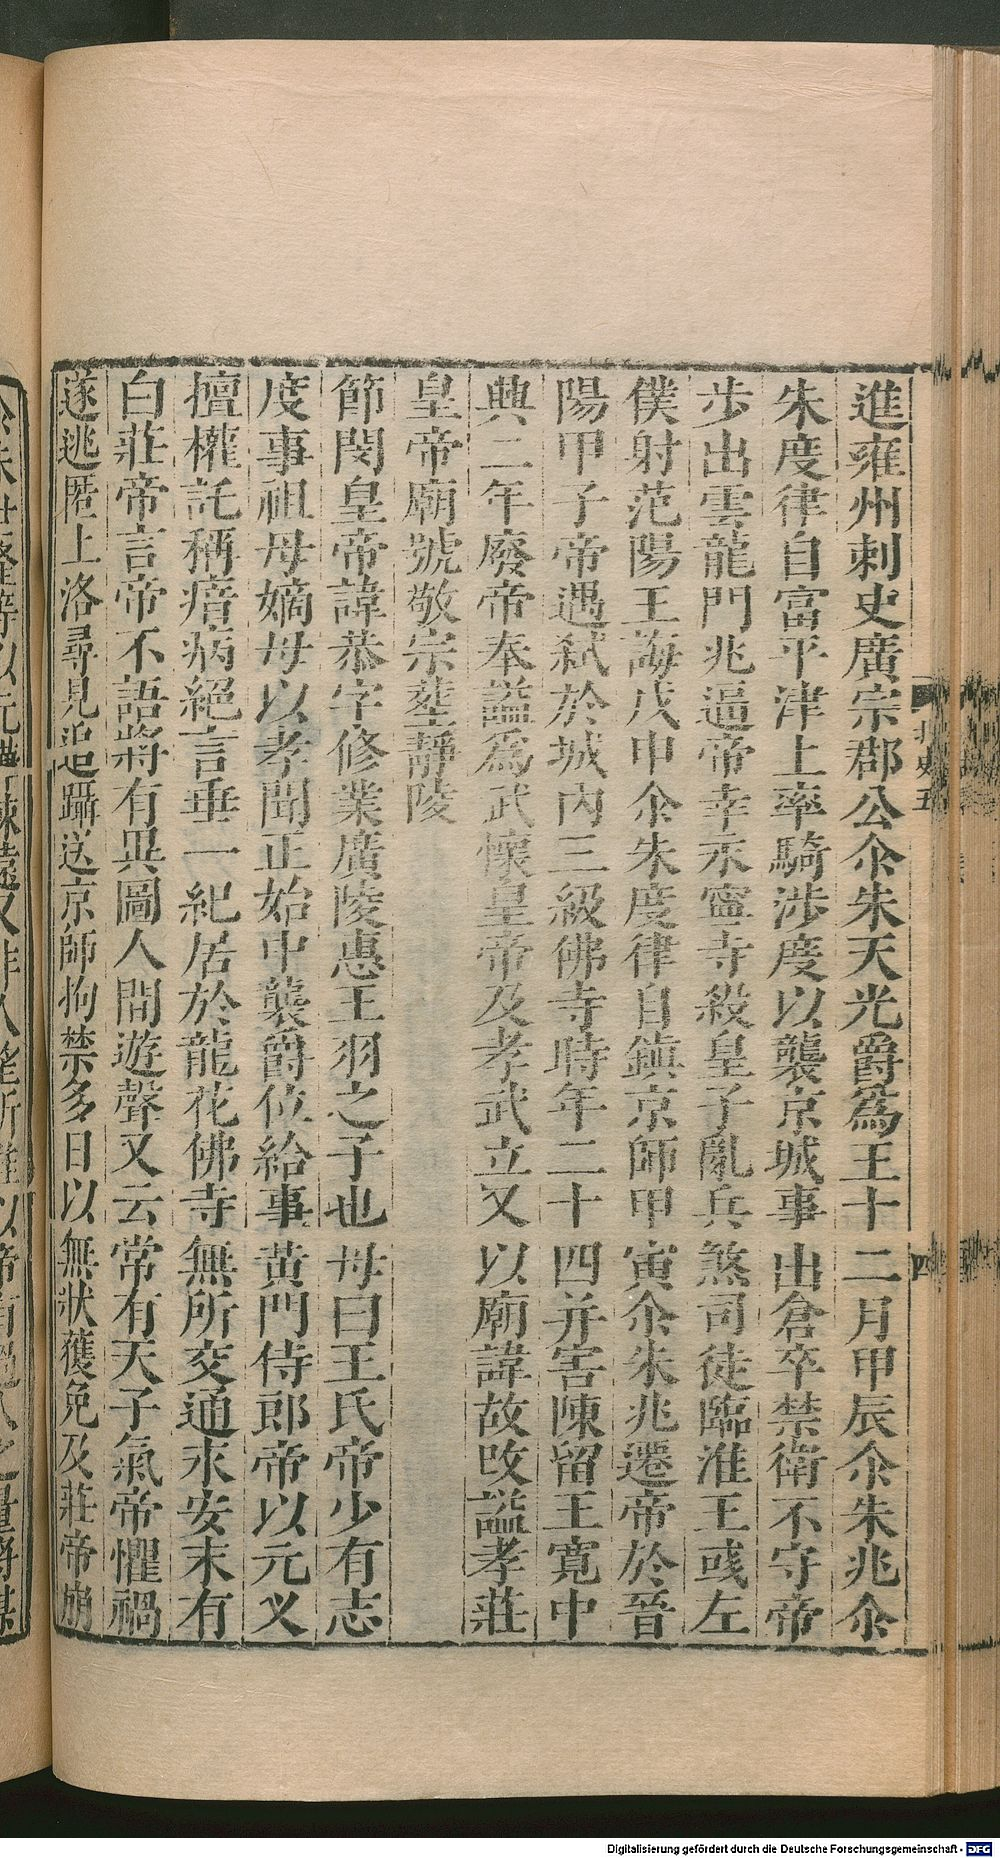 進雍州刺史廣宗郡公尒朱天光爵爲王十二月甲辰尒朱兆尒
朱度律自富平津上率騎涉度以襲京城事出倉卒禁衛不守帝
步出雲龍門兆逼帝幸永寧寺殺皇子亂兵煞司徒臨淮王彧左
僕射范陽王誨戊申尒朱度律自鎮京師甲寅尒朱兆遷帝於晉
陽甲子帝遇弒於城内三級佛寺時年二十四并害陳留王寛中
興二年廢帝奉謚爲武懷皇帝及孝武立又以廟諱故改謚孝莊
皇帝廟號敬宗塟靜陵
節閔皇帝諱恭字修業廣陵惠王羽之子也母曰王氏帝少有志
度事祖母嫡母以孝聞正始中襲爵位給事黄門侍郎帝以元乂
擅權託稱瘖病絕言垂一紀居於龍花佛寺無所交通永安末有
白莊帝言帝不語將有異圖人間遊聲又云常有天子氣帝懼禍
遂逃匿上洛尋見追躡送京師拘禁多日以無狀獲免及莊帝崩
北史五
四
Digitalisierung gefördert durch die Deutsche Forschungsgemeinschaft - DFG